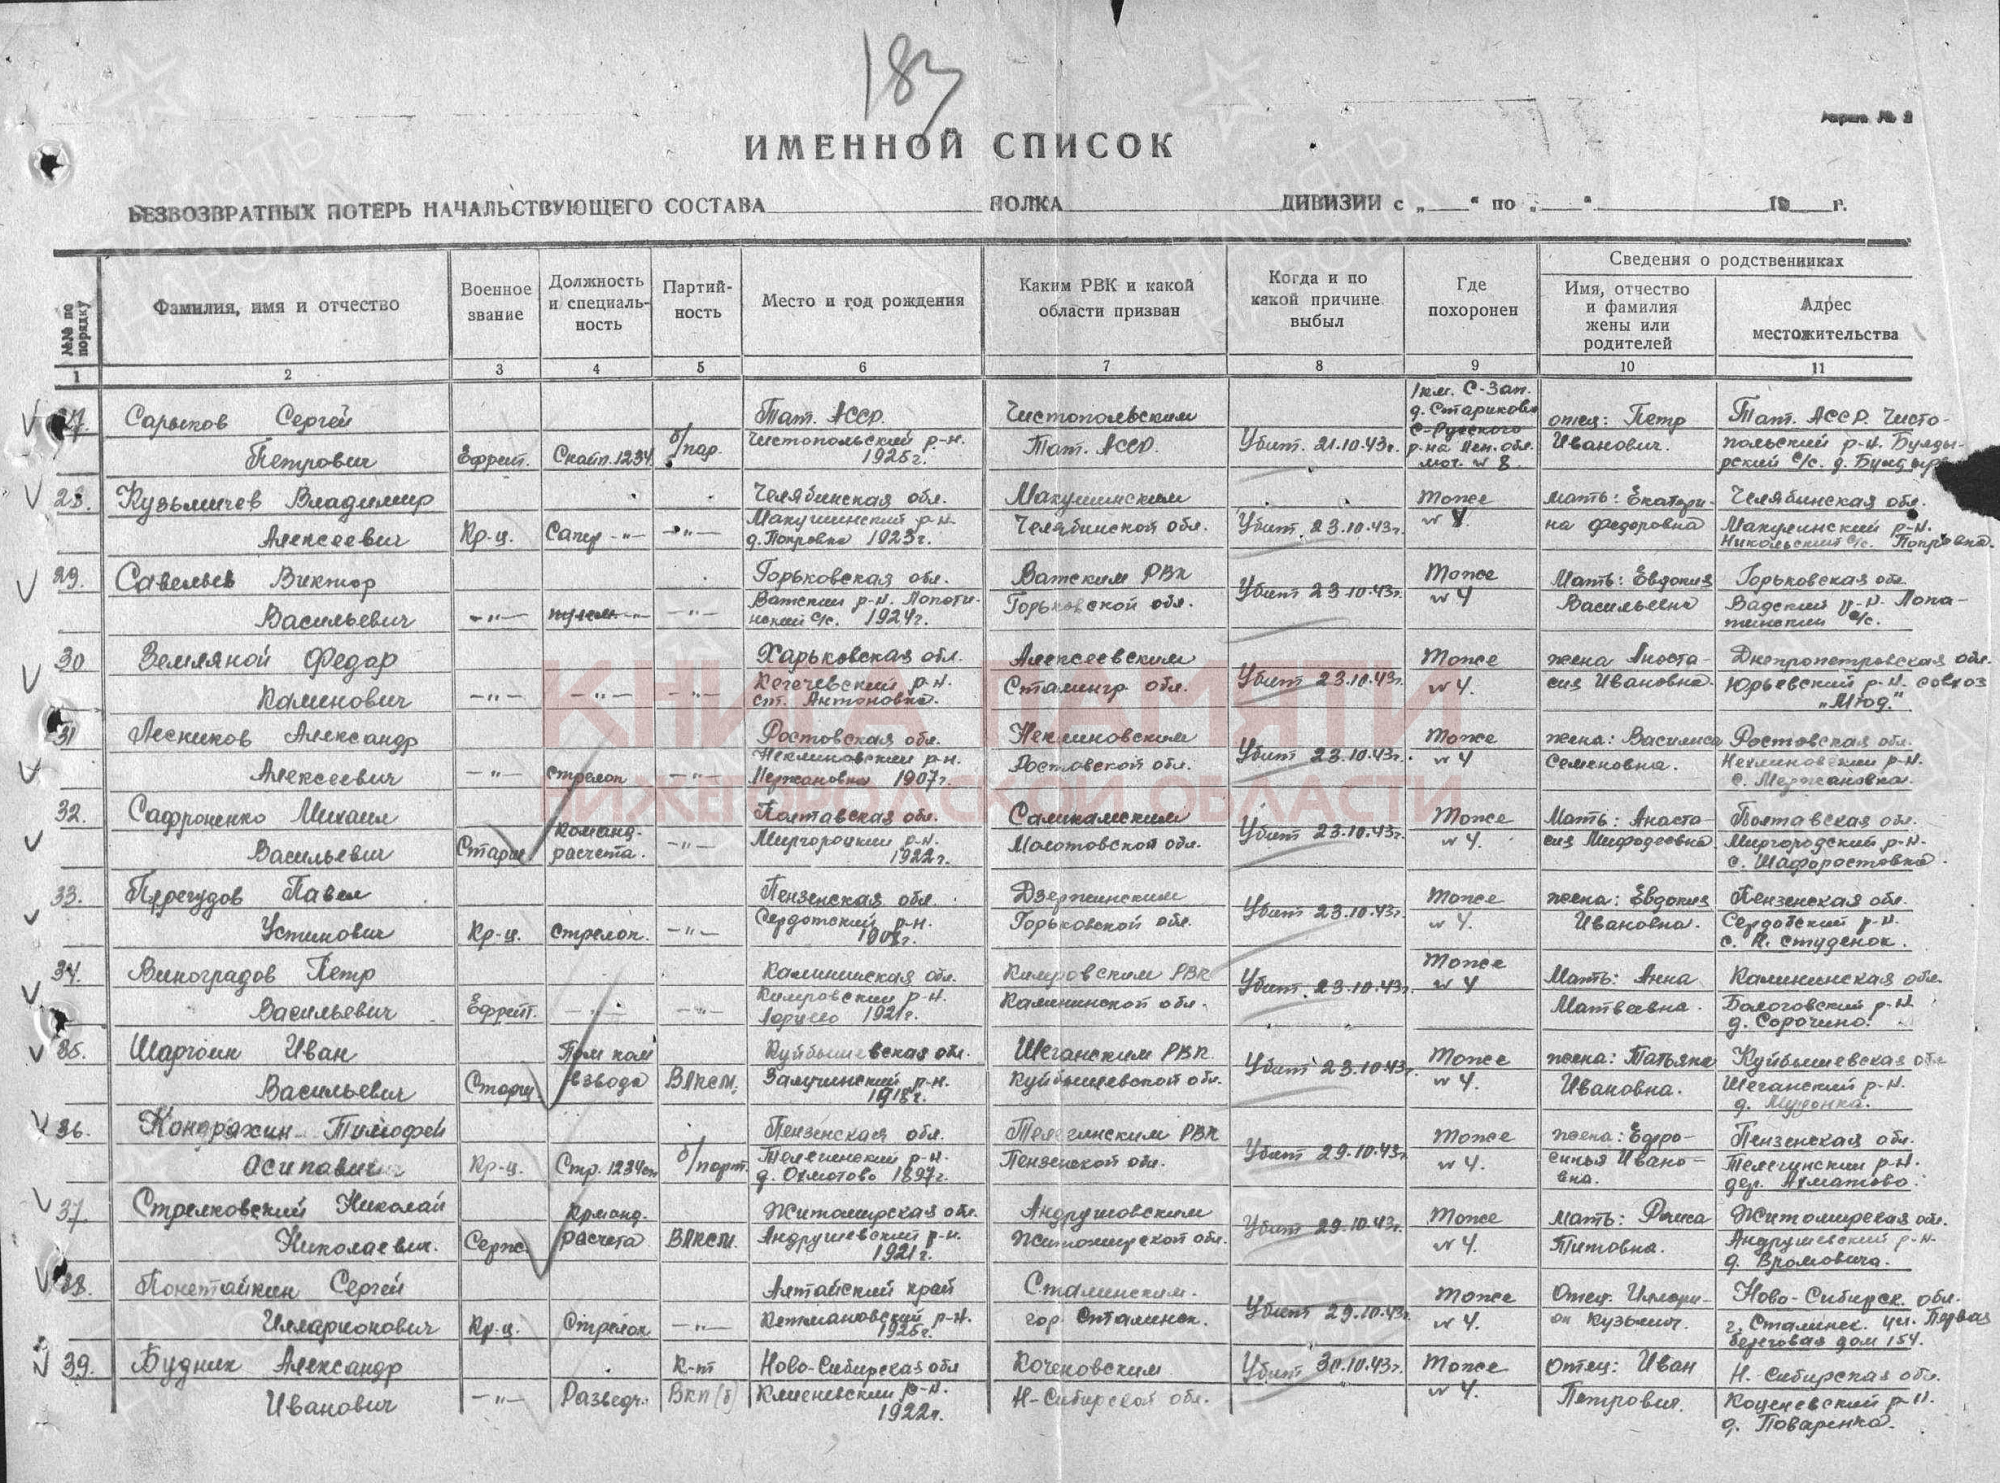 183
ИМЕННОЙ СПИСОК
БЕЗВОЗВРАТНЫХ ПОТЕРЬ НАЧАЛЬСТВУЮЩЕГО СОСТАВА ПОЛКА ДИВИЗИИ с „ “ по „ “ 19 г.
№№ по порядку
Фамилия, имя и отчество
Военное звание
Должность и специаль-ность
Партий-ность
Место и год рождения
Каким РВК и какой области призван
Когда и по какой причине выбыл
Где похоронен
Сведения о родственниках
Имя, отчество и фамилия жены или родителей
Адрес местожительства
1 2 3 4 5 6 7 8 9 10 11
27. Сарыков Сергей Тат. АССР. Чистопольским 1 км. С-Зап. д. Стариково отец: Петр Тат. АССР. Чисто-
Петрович Ефрейт. б/пар. Чистопольский р-н. 1925 г. Тат. АССР. Убит 21.10.43 г. С-Русского р-на Лен. обл. Иванович. польский р-н. Булды-
рский с/с. д.
28. Кузьмичев Владимир Челябинская обл. Макушинским Тоже мать: Екатери- Челябинская обл.
Алексеевич Кр-ц. Сапер -"- -"- Макушинский р-н. д. Покровка 1923 г. Челябинской обл. Убит 23.10.43 г. на Федоровна Никольский с/с.
29. Савельев Виктор Горьковская обл. Ватским РВК Тоже Мать: Евдокия Горьковская обл
Васильевич -"- -"- Ватский р-н. Лопати-нский с/с. 1924 г. Горьковской обл. Убит 23.10.43 г. № 4 Васильевна Вадский р-н. Лопа-
30 Земляной Федор Харьковская обл. Алексеевским Тоже жена Анаста- Днепропетровская обл.
Каменович -"- -"- -"- Кегечевский р-н. ст. Антоновка. Сталингр обл. Убит 23.10.43 г. № 4. сия Ивановна. Юрьевский р-н. совхоз
31 Лесников Александр Ростовская обл. Неклиновским Тоже жена: Василиса Ростовская обл.
Алексеевич -"- стрелок -"- Неклиновский р-н. Мержановка 1907 г. Ростовской обл. Убит 23.10.43 г. № 4 Семеновна. Неклиновский р-н.
с. Мержановка.
32. Сафроненко Михаил Команд. Полтавская обл. Соликамским Тоже Мать: Анаста- Полтавская обл.
Васильевич расчета. -"- Миргородский р-н. 1922 г. Молотовской обл. Убит 23.10.43 г. № 4. Миргородский р-н.
33. Перегудов Павел Пензенская обл. Дзержинским Тоже жена: Евдокия Пензенская обл.
Устинович Кр-ц. Стрелок. -"- Горьковской обл. Убит 23.10.43 г. № 4. Ивановна. Сердобский р-н.
34. Виноградов Петр Калининская обл. Кимровским РВК Тоже Мать: Анна Калининская обл.
Васильевич Ефрейт. -"- -"- Кимровский р-н. 1921 г. Калининской обл. Убит 23.10.43 г. № 4 Матвеевна. Бологовский р-н
35. Иван Пом ком Куйбышевская обл. Шеганским РВК Тоже жена: Татьяна Куйбышевская обл
Васильевич взвода ВЛКСМ. 1918 г. Куйбышевской обл. Убит 23.10.43 г. № 4. Ивановна. Шеганский р-н.
36. Кондряхин Тимофей Пензенская обл. Телегинским РВК Тоже жена: Ефро- Пензенская обл.
Кр-ц. б/парт. Телегинский р-н. 1897 г. Пензенской обл. Убит 29.10.43 г. № 4. синья Ивано-вна. Телегинский р-н.
37. Стрелковский Николай Команд. Житомирская обл. Андрушовским Тоже мать: Раиса Житомирская обл.
Николаевич. Серж. расчета ВЛКСМ. Андрушевский р-н. 1921 г. Житомирской обл. Убит 29.10.43 г. № 4. Титовна. Андрушевский р-н.
38. Понетайкин Сергей Алтайский край Сталинским. Тоже Отец: Иллари- Ново-Сибирск. обл.
Илларионович Кр-ц. Стрелок -"- гор. Сталинск. Убит 29.10.43 г. № 4. он Кузьмич. г. Сталинск. ул. Первая
береговая дом 154.
39. Будник Александр К-т Ново-Сибирская обл Коченовским Убит 30.10.43 г. Тоже Отец: Иван Н-Сибирская обл.
Иванович -"- Разведч. ВКП(б) 1922 г. Н-Сибирской обл. № 4. Петрович.
д. Поваренка.
КНИГА ПАМЯТИ
НИЖЕГОРОДСКОЙ ОБЛАСТИ